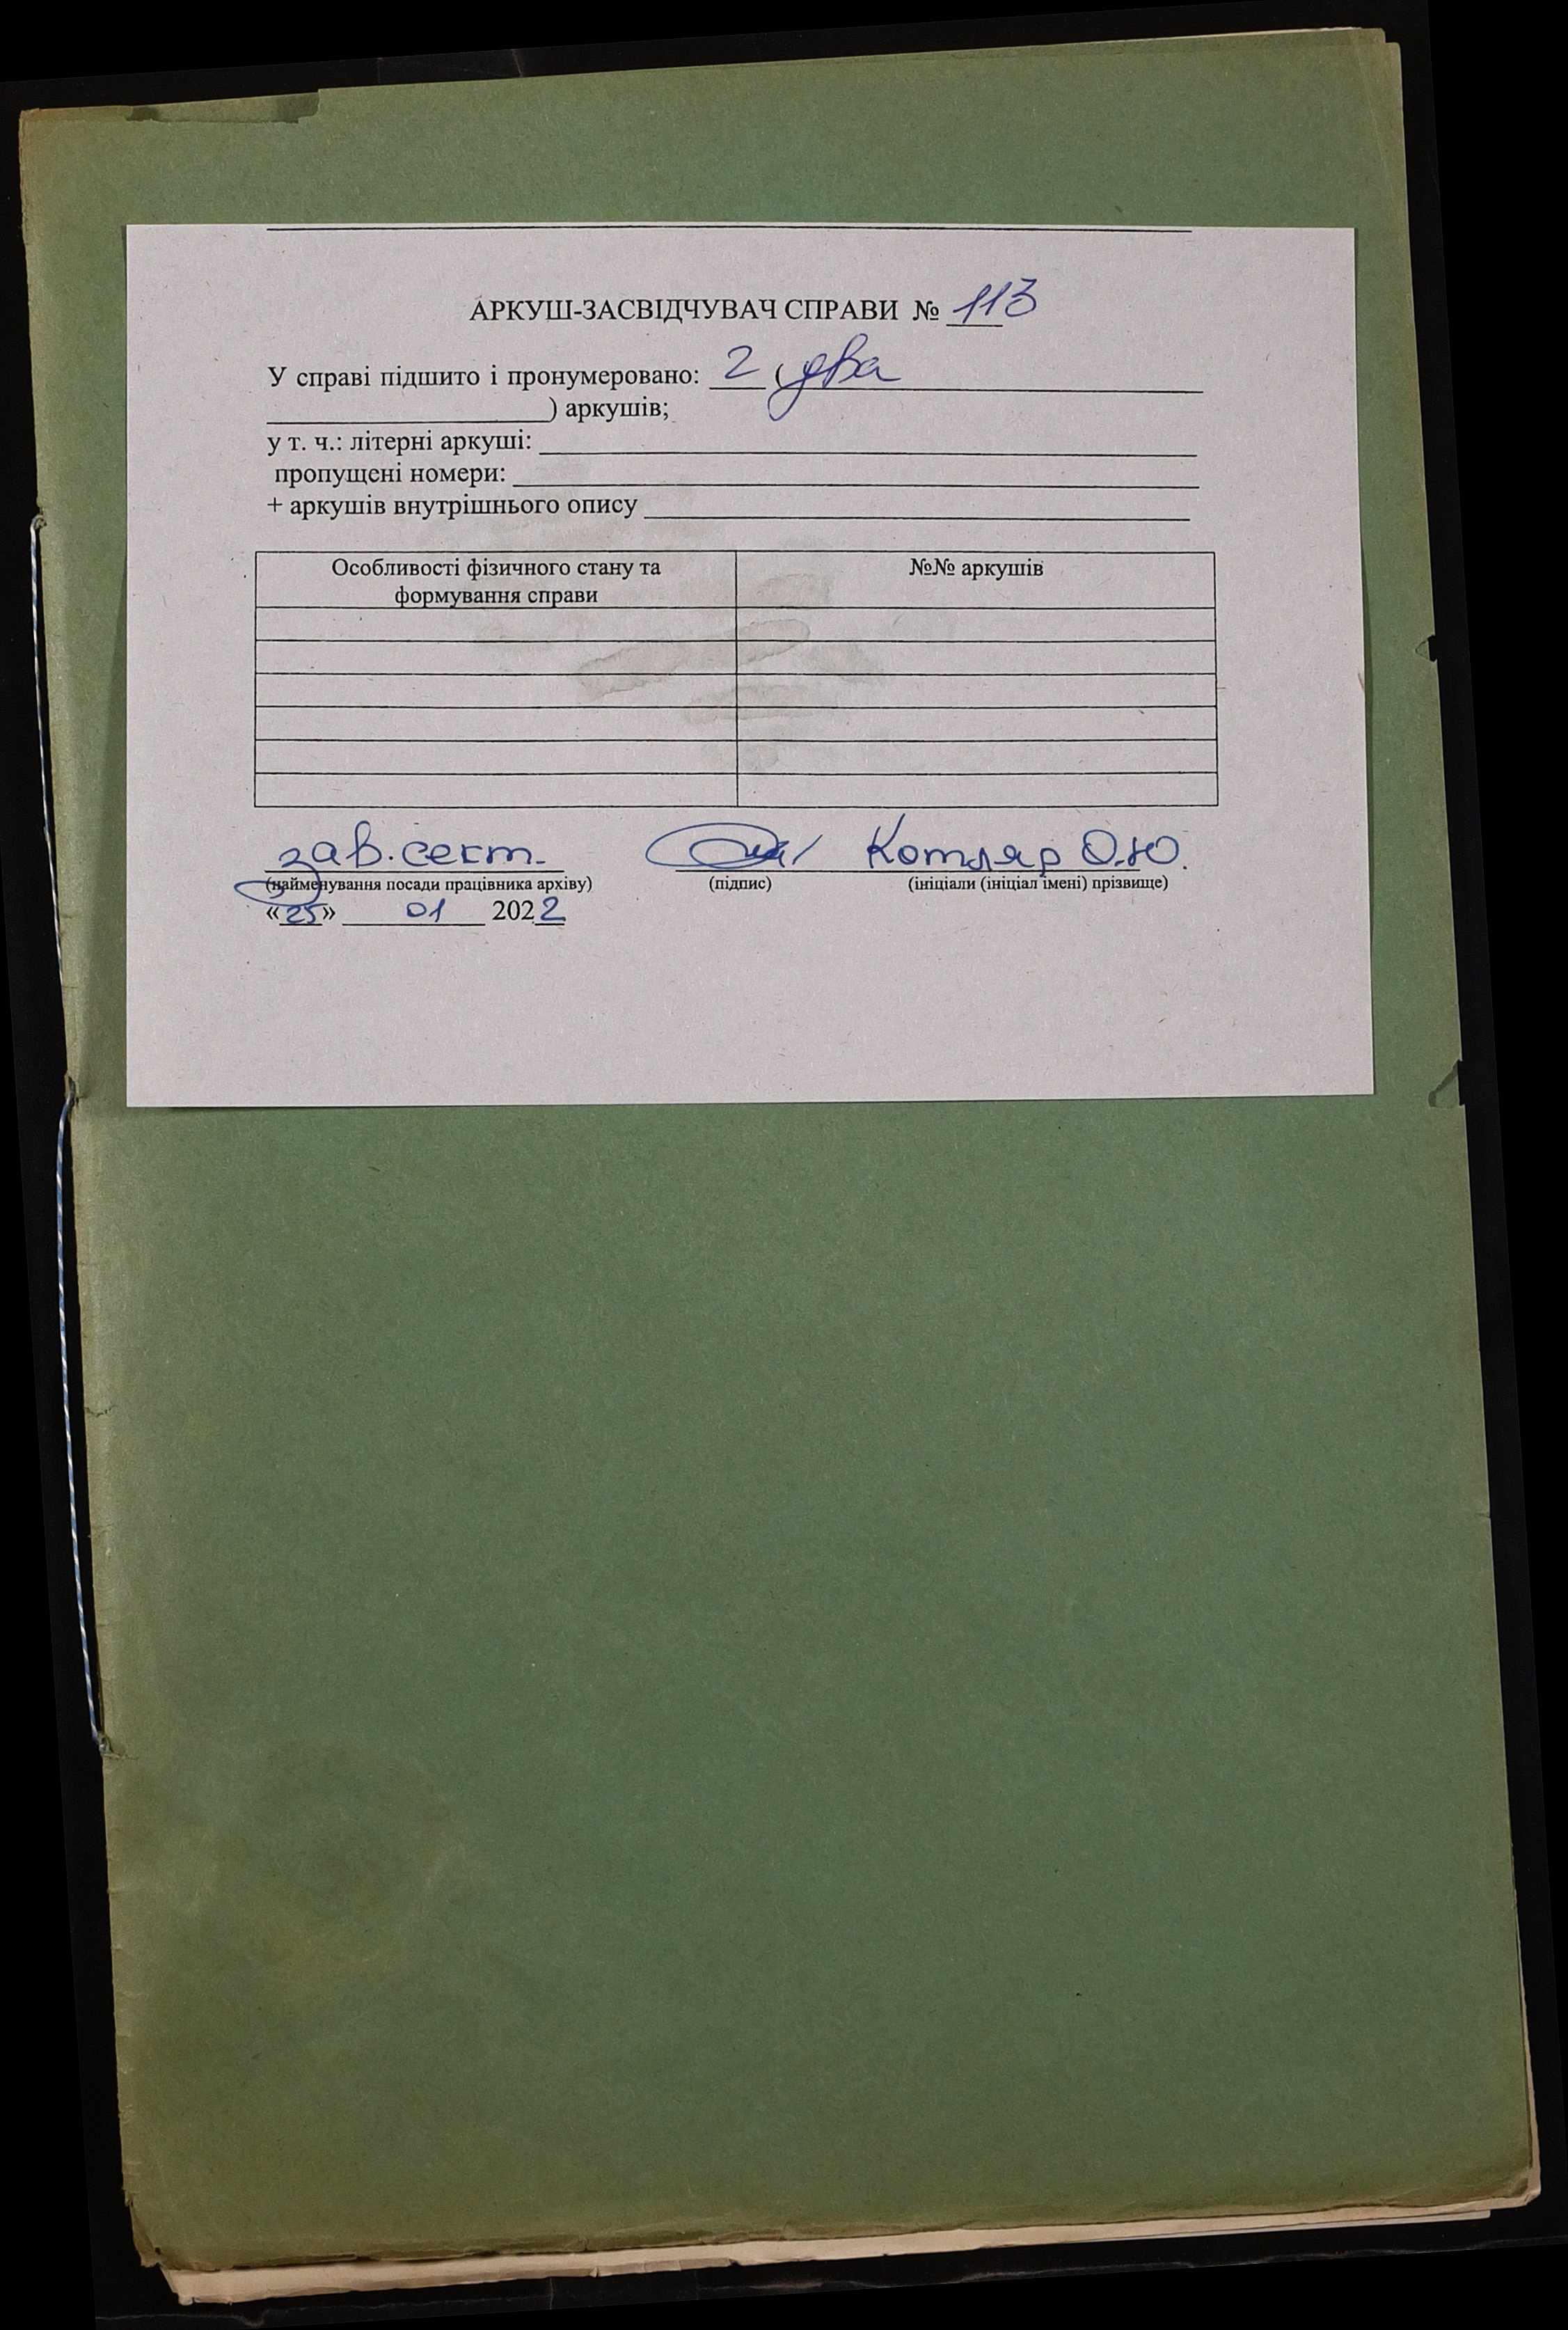 АРКУШ-ЗАСВІДЧУВАЧ СПРАВИ № 113
У справі підшито і пронумеровано: 2 (два
) аркушів;
у т. ч.: літерні аркуші:
пропущені номери:
+ аркушів внутрішнього опису
Особливості фізичного стану та формування справи №№ аркушів
зав. сект. Котляр О.Ю.
(найменування посади працівника архіву) (підпис) (ініціали (ініціал імені) прізвище)
«25» 01 2022